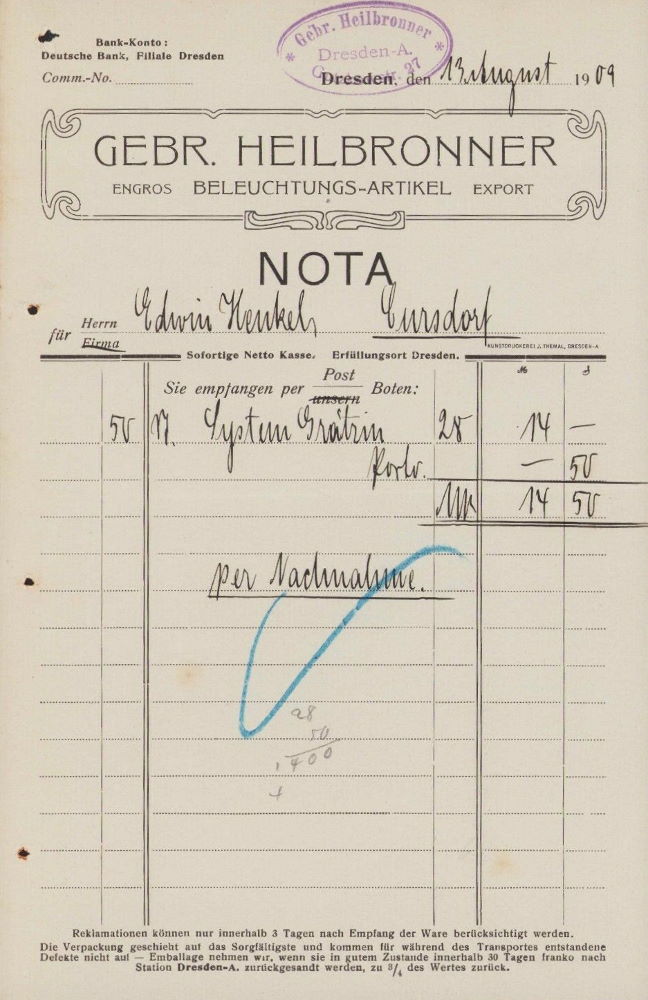 Bank-Konto:
Deutsche Bank, Filiale Dresden
Comm.-No.
Gebr. Heilbronner
Dresden-A.
37
Dresden, den 13. August 1909
GEBR. HEILBRONNER
ENGROS BELEUCHTUNGS-ARTIKEL EXPORT
NOTA
für Herrn Firma Edwin Henkel, Cursdorf
KUNSTDRUCKEREI J. THEMAL, DRESDEN-A
Sofortige Netto Kasse. Erfüllungsort Dresden.
Sie empfangen per Post unsern Boten:
50 System Grätzin 28 14 —
Porto. — 50
Mk 14 50
per Nachnahme.
28
50
1400
Reklamationen können nur innerhalb 3 Tagen nach Empfang der Ware berücksichtigt werden.
Die Verpackung geschieht auf das Sorgfältigste und kommen für während des Transportes entstandene
Defekte nicht auf — Emballage nehmen wir, wenn sie in gutem Zustande innerhalb 30 Tagen franko nach
Station Dresden-A. zurückgesandt werden, zu 3/4 des Wertes zurück.